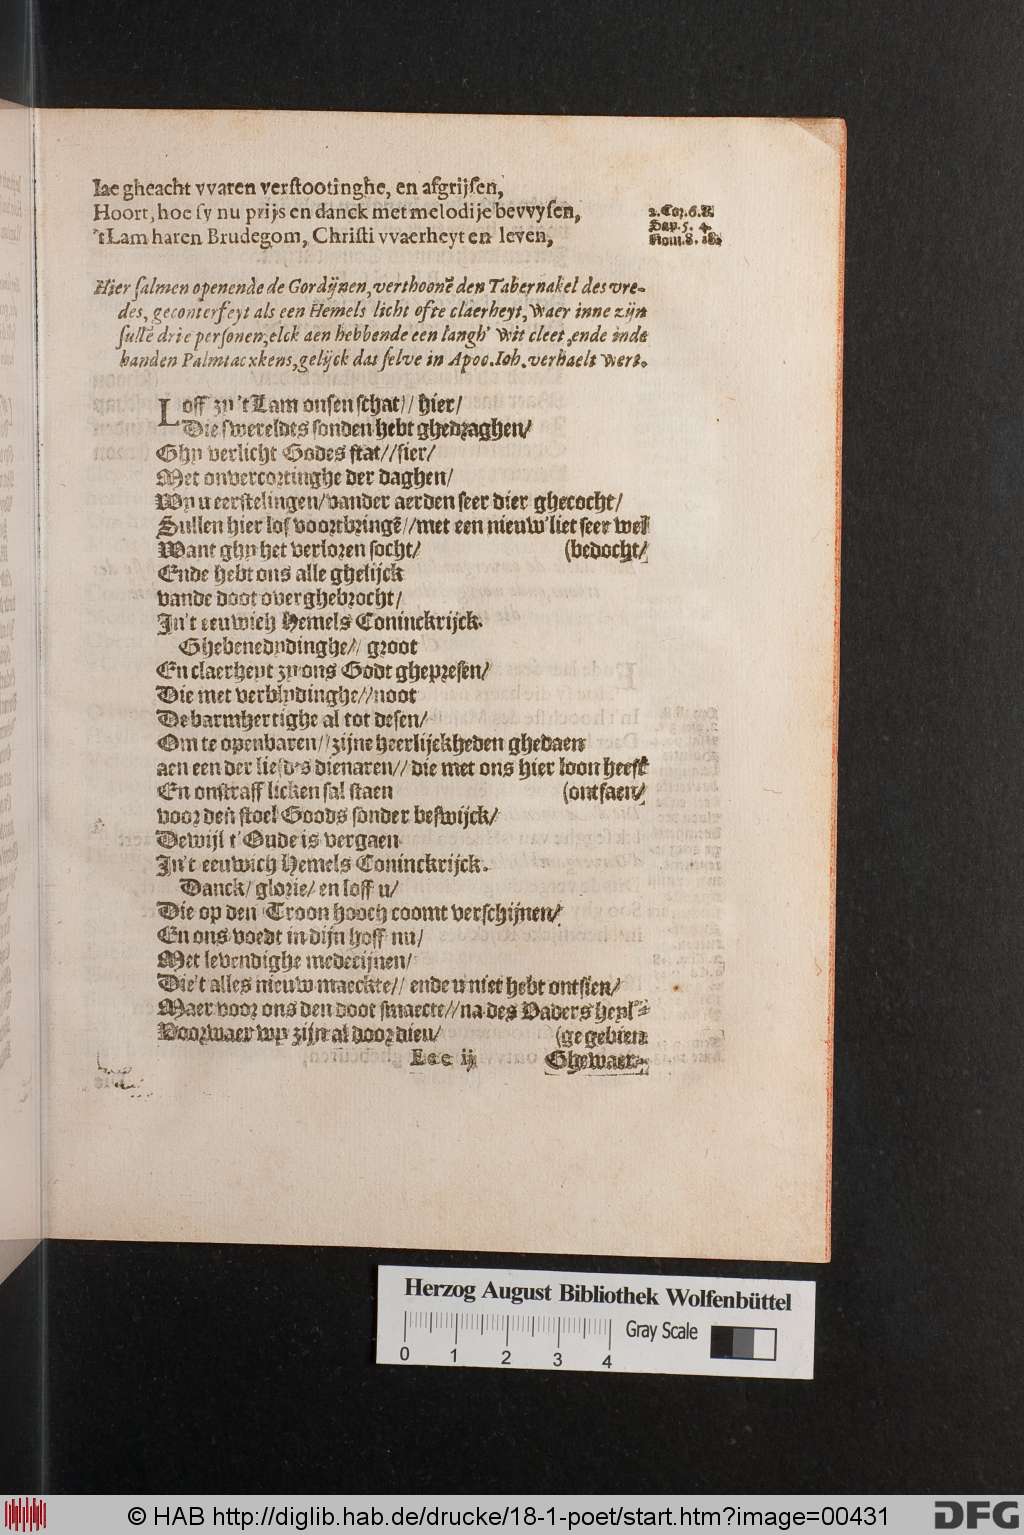 Iae gheacht vvaren verstootinghe, en afgrijsen,
Hoort, hoe sy nu prijs en danck met melodije bevvysen,
'tLam haren Brudegom, Christi vvaerheyt en leven,
2. Cor. 6.
Sap. 5. 4.
Rom. 8.
Hier salmen openende de Gordijnen, verthoonẽ den Tabernakel des vre-
des, geconterfeyt als een Hemels licht ofte claerheyt, waer inne zijn
sullẽ drie personen, elck aen hebbende een langh' wit cleet, ende inde
handen Palmtacxkens, gelijck dat selve in Apoc. Ioh. verhaelt wert.
Loff zy 'tLam onsen schat// hier/
Die swereldts sonden hebt ghedraghen/
Ghy verlicht Godes stat//fier/
Met onvercortinghe der daghen/
Wy u eerstelingen/vander aerden seer dier ghecocht/
Sullen hier lof voortbringẽ//met een nieuw'liet seer wel
Want ghy het verloren socht/ (bedocht/
Ende hebt ons alle ghelijck
vande doot overghebrocht/
In't eeuwich Hemels Coninckrijck.
Ghebenedydinghe// groot
En claerheyt zy ons Godt ghepresen/
Die met verblydinghe//noot
De barmhertighe al tot desen/
Om te openbaren//zijne heerlijckheden ghedaen
aen een der liefdes dienaren// die met ons hier loon heeft
En onstrafflicken sal staen (ontfaen/
voor den stoel Goods sonder beswijck/
Dewijl t'Oude is vergaen
In't eeuwich Hemels Coninckrijck.
Danck/ glorie/ en loff u/
Die op den Troon hooch coomt verschijnen/
En ons voedt in dijn hoff nu/
Met levendighe medecijnen/
Die't alles nieuw maeckte// ende u niet hebt ontsien/
Maer voor ons den doot smaecte//na des Vaders heyl-
Voorwaer wy zijn al door dien/ (ge gebien
Eee ij Ghewaer-
Herzog August Bibliothek Wolfenbüttel
0 1 2 3 4
Gray Scale
© HAB http://diglib.hab.de/drucke/18-1-poet/start.htm?image=00431
DFG